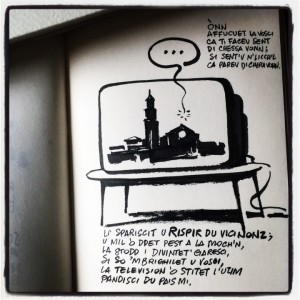 ÒNN
AFFUCUET LA VOSCI
CA TI FACEU SENT
DI CHESSA VONN;
SI SENT'V N'
CA PAREU
...
LÌ SPARISCIT U RISPIR DU VICINONZ;
U MIL'O DDET PEST A LA MOCH'N,
LA GRODD I DIVINTET
SI SO 'MBRIGHILET U VOSCI,
LA TELEVISION 'O STITET L'UTIM
PANDISCI DU PAIS MI.